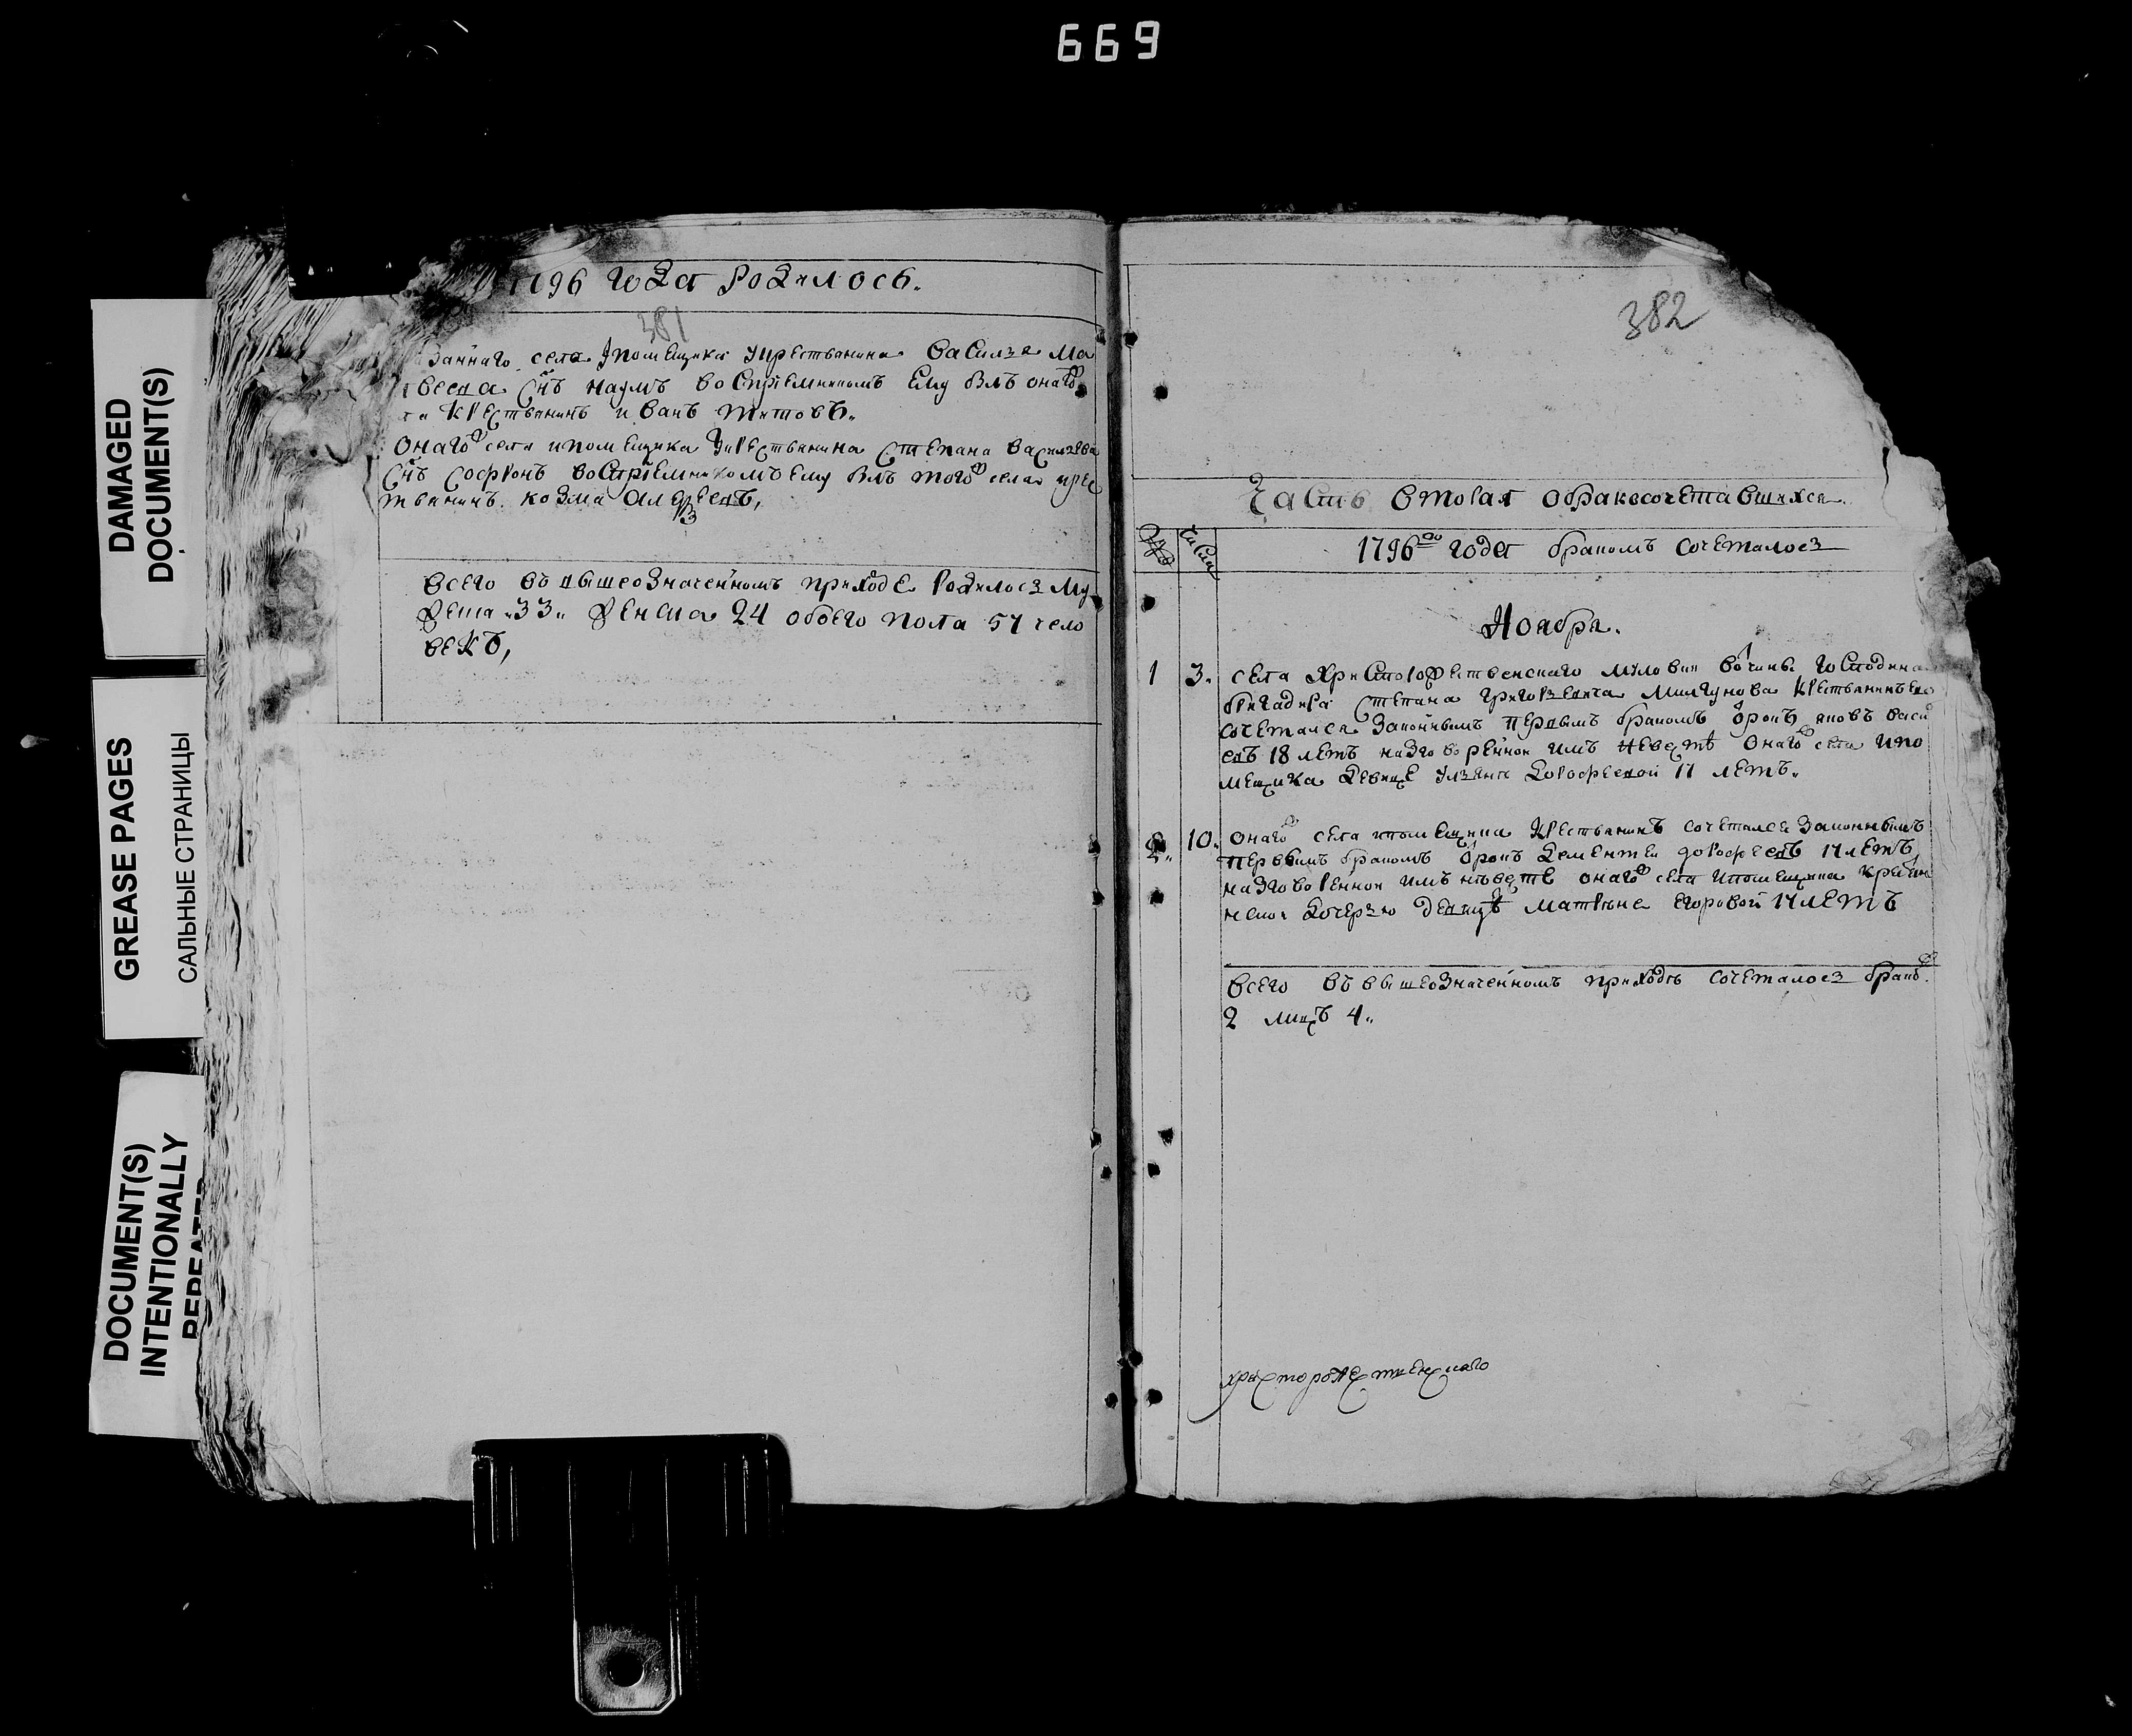 669
DAMAGED
DOCUMENT(S)
GREASE PAGES
САЛЬНЫЕ СТРАНИЦЫ
DOCUMENT(S)
INTENTIONALLY
REPEATED
1796 года родилось.
381
села помещика крестьянина Василья Ма
веева снъ наумъ восприемникомъ ему былъ онаго
крестьянинъ иванъ титовъ.
онаго села и помещика у крестьянина Степана васильева
снъ софронъ восприемникомъ ему былъ того села крес
тьянинъ козма алексеевъ,
всего въ вышеозначенномъ приходе родилось му
жеска 33 женска 24 обоего пола 57 чело
векъ,
382
Часть вторая о бракосочетавшихся
числа
1796го года бракомъ сочеталось
Ноября.
1 3. села Христорождественскаго вочины господина
бригадира Степана григорьевича крестьянинъ ево
сочетался законнымъ первымъ бракомъ отрокъ яковъ васи
евъ 18 летъ на зговоренной имъ невестѣ онаго села и по
мещика девице ульяне дорофеевой 17 летъ.
2. 10. онаго села и помещика крестьянинъ сочетался законнымъ
первымъ бракомъ отрокъ дементей дорофеевъ 17 летъ
на зговоренной имъ невесте онаго села и помещика крестьян
ской дочерью девицѣ матроне егоровой 17 летъ
всего въ вышеозначенномъ приходѣ сочеталось браковъ
2 лицъ 4.
христорождественскаго